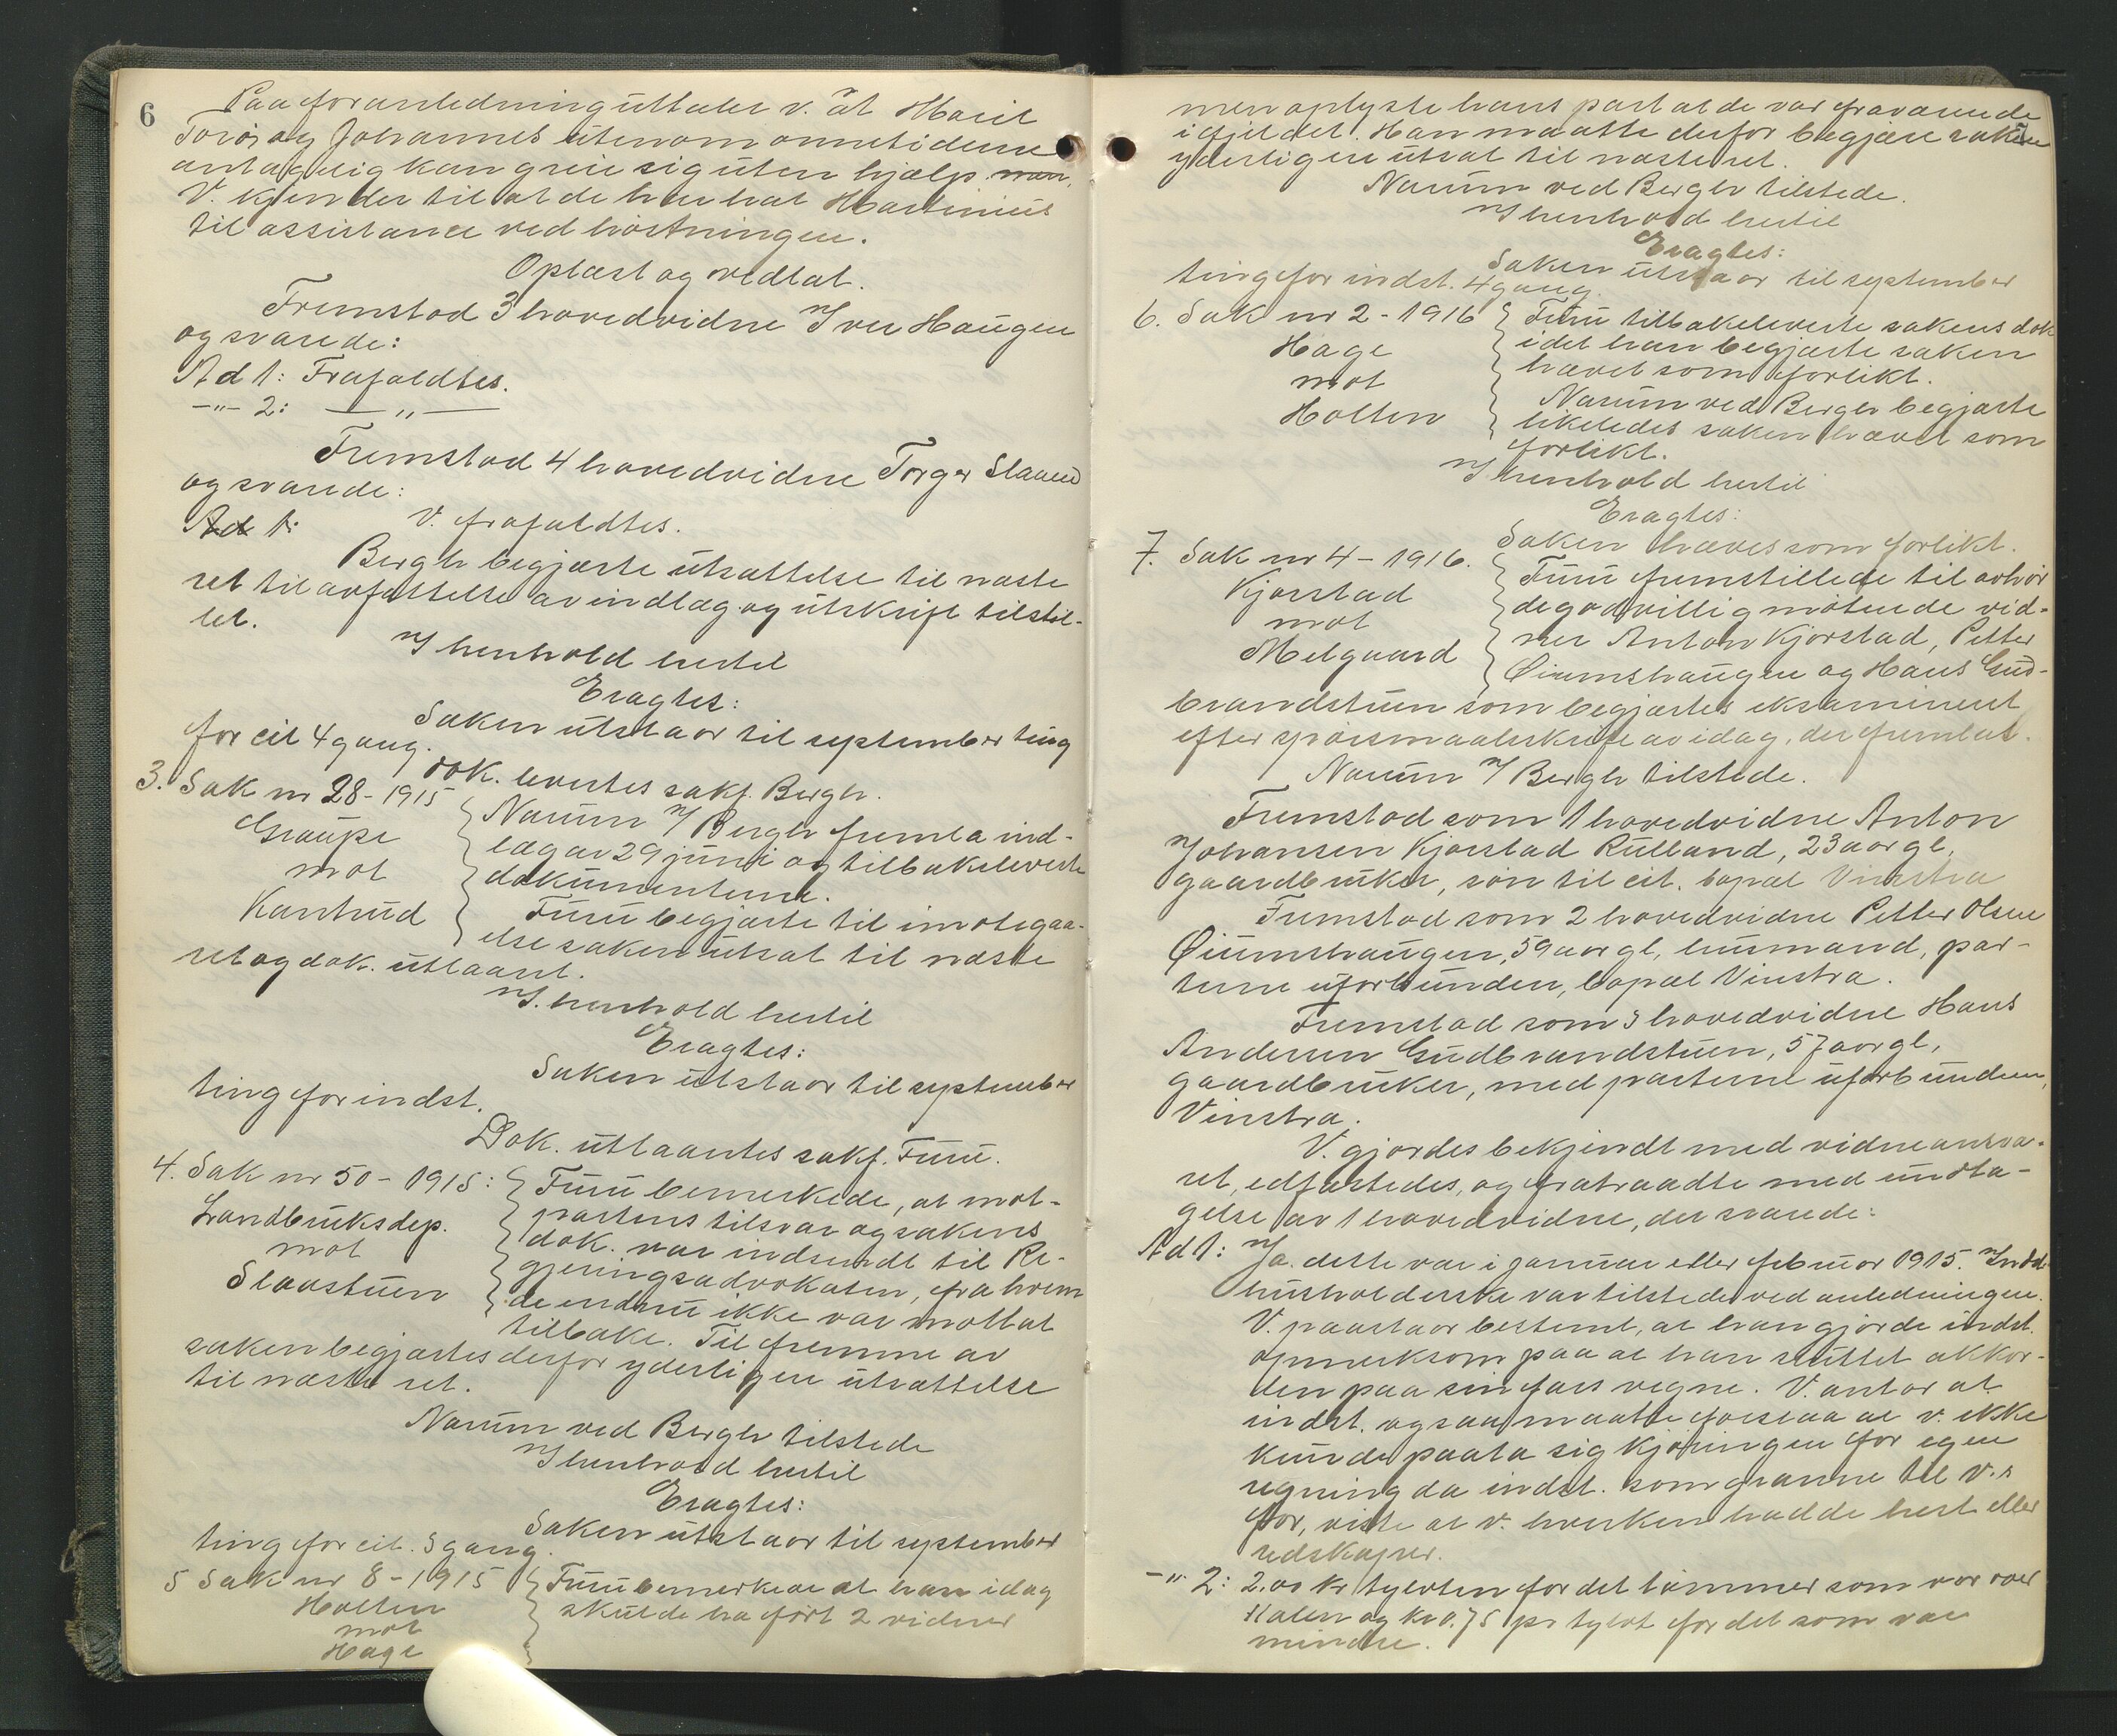 6
Paa foranledning uttaler v. at Marit
Torø og Johannes utenom onnetiderne
antagelig kan greie sig uten hjælp
V. kjender til at de har hat Martinius
til assistance ved høstningen.
Oplæst og vedtat.
Fremstod 3 hovedvidne Iver Haugen
og svarede:
Ad 1: Frafaldtes.
-"- 2: —"—
Fremstod 4 hovedvidne Torger Slaaen
og svarede:
Ad 1: V. frafaldtes.
Bergh begjærte utsættelse til næste
ret til avfattelse av indlæg og utskrift tilstil-
let.
I henhold hertil
Eragtes:
Saken utstaar til september ting
for cit 4 gang.
Dok. levertes sakf. Bergh.
3. Sak nr 28 - 1915
Graupe
mot
Kantrud
Narum v/ Bergh fremla ind-
læg av 29 juni og tilbakeleverte
dokumenterne.
Furu begjærte til imøtegaa-
else saken utsat til næste
ret og dok. utlaant.
I henhold hertil
Eragtes:
Saken utstaar til september
ting for indst.
Dok. utlaantes sakf. Furu.
4. Sak nr 50 - 1915:
Landbruksdep.
mot
Slaastuen
Furu bemerkede, at mot-
partens tilsvar og sakens
dok. var indsendt til Re-
gjeringsadvokaten, fra hvem
de endnu ikke var mottat
tilbake. Til fremme av
saken begjærtes derfor yderligere utsættelse
til næste ret.
Narum ved Bergh tilstede
I henhold hertil
Eragtes:
Saken utstaar til september
ting for cit. 3 gang.
5 Sak nr 8 - 1915
Holten
mot
Hage
Furu bemerkede at han idag
skulde ha ført 2 vidner
men oplyste hans part at de var fraværende
i fjeldet. Han maatte derfor begjære saken
yderligere utsat til næste ret.
Narum ved Bergh tilstede.
I henhold hertil
Eragtes:
Saken utstaar til september
ting for indst. 4 gang.
6. Sak nr 2 - 1916
Hage
mot
Holten
Furu tilbakeleverte sakens dok
idet han begjærte saken
hævet som forlikt.
Narum ved Bergh begjærte
likeledes saken hævet som
forlikt.
I henhold hertil
Eragtes:
Saken hæves som forlikt.
7. Sak nr 4 - 1916.
Kjørstad
mot
Melgaard
Furu fremstillede til avhør
de godvillig møtende vid-
ner Anton Kjørstad, Petter
Øiumshaugen og Hans Gud-
brandstuen som begjærtes eksamineret
efter spørsmaalsskrift av idag, der fremlas.
Narum v/ Bergh tilstede.
Fremstod som 1 hovedvidne Anton
Johansen Kjørstad Rulland, 23 aar gl,
gaardbruker, søn til cit. bopæl Vinstra
Fremstod som 2 hovedvidne Petter Olsen
Øiumshaugen, 59 aar gl, husmand, par-
terne uforbunden, bopæl Vinstra.
Fremstod som 3 hovedvidne Hans
Andersen Gudbrandstuen, 57 aar gl,
gaardbruker, med parterne uforbunden,
Vinstra.
V. gjordes bekjendt med vidneansva-
ret, edfæstedes, og fratraadte med undta-
gelse av 1 hovedvidne, der svarede:
Ad 1: Ja. dette var i januar eller februar 1915. Indst.
husholderske var tilstede ved anledningen.
V. paastaar bestemt, at han gjorde indst.
opmerksom paa at han sluttet akkor-
den paa sin fars vegne. V. antar at
indst. ogsaa maatte forstaa at v. ikke
kunde paata sig kjøringen for egen
regning da indst. som granne til v.s
far, viste at v. hverken hadde hest eller
redskaper.
-"- 2: 2.00 kr tylvten for det tømmer som var over
alen og kr 0.75 pr tylvt for det som var
mindre.